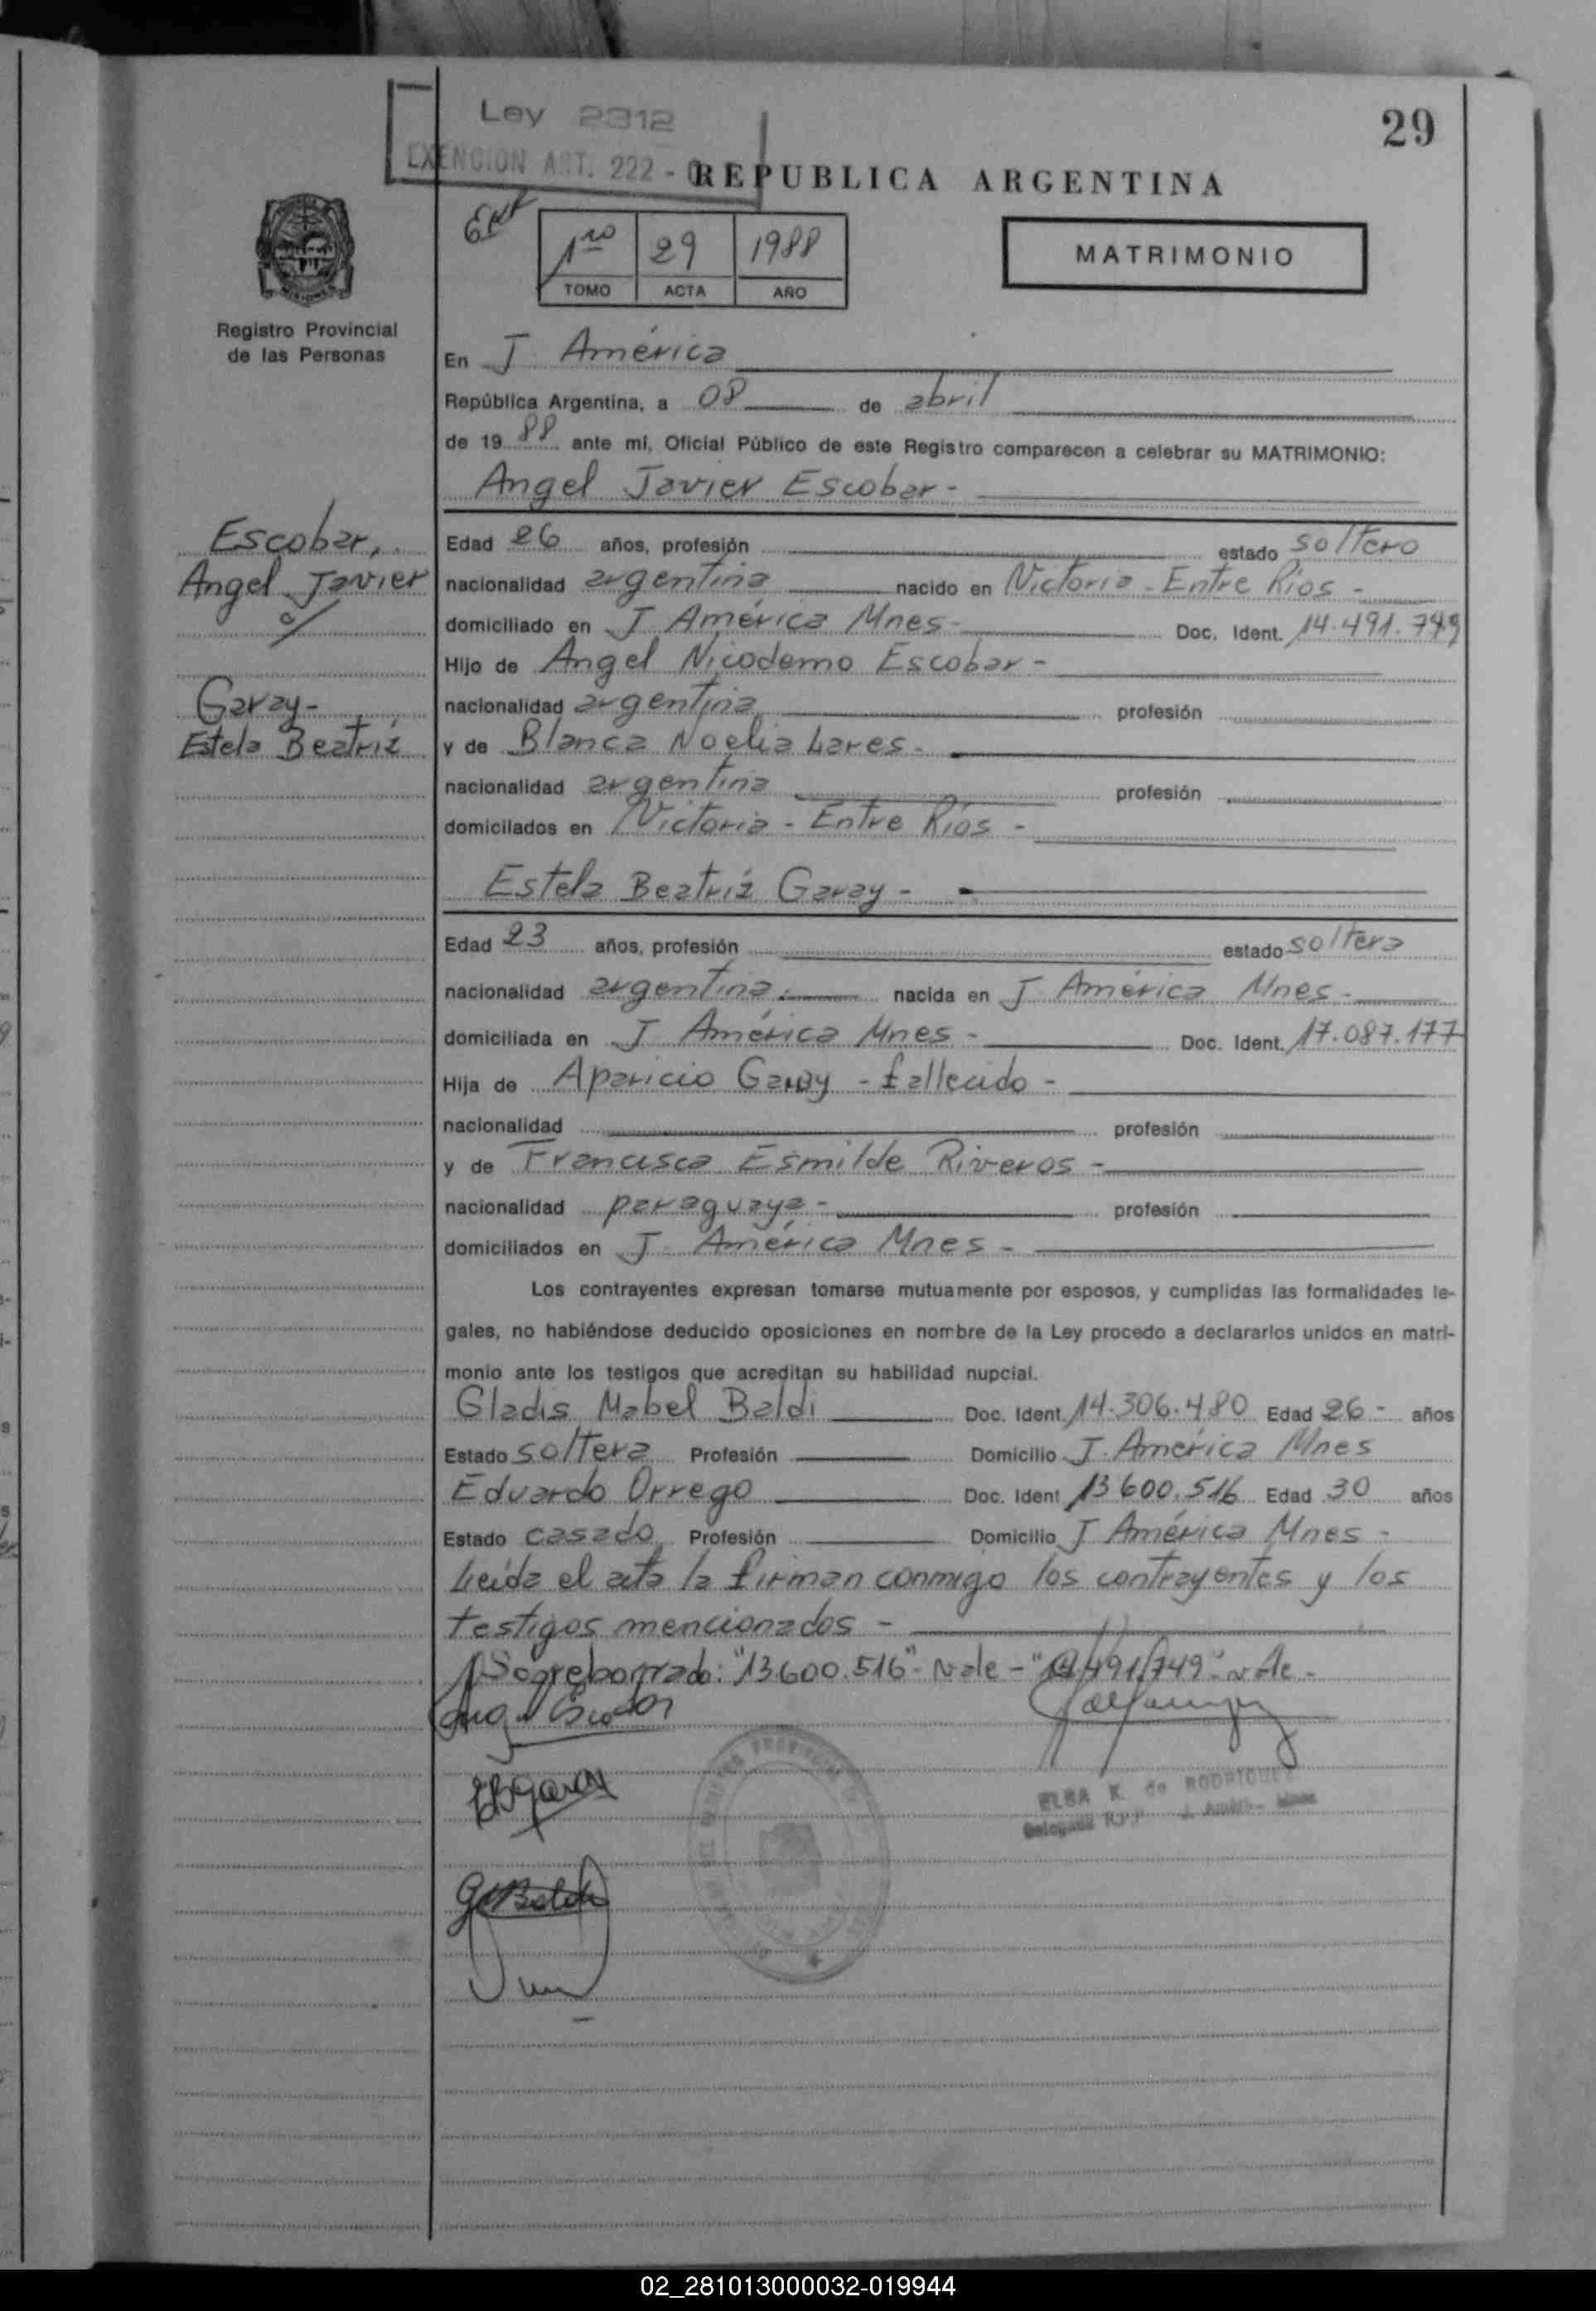 29
Ley 2312
EXENCION ART. 222 -
REPUBLICA ARGENTINA
1ro 29 1988
TOMO ACTA AÑO
MATRIMONIO
Registro Provincial
de las Personas
En J. América
República Argentina, a 08 de abril
de 1988 ante mi, Oficial Público de este Registro comparecen a celebrar su MATRIMONIO:
Angel Javier Escobar -
Escobar,
Angel Javier
c/
Garay -
Estela Beatriz
Edad 26 años, profesión estado soltero
nacionalidad argentina nacido en Victoria - Entre Ríos -
domiciliado en J. América Mnes - Doc. Ident. 14.491.749
Hijo de Angel Nicodemo Escobar -
nacionalidad argentina profesión
y de Blanca Noelia Lares -
nacionalidad argentina profesión
domicilados en Victoria - Entre Ríos -
Estela Beatriz Garay -
Edad 23 años, profesión estado soltera
nacionalidad argentina nacida en J. América Mnes -
domiciliada en J. América Mnes - Doc. Ident. 17.087.177
Hija de Aparicio Garay - fallecido -
nacionalidad profesión
y de Francisca Esmilde Riveros -
nacionalidad paraguaya - profesión
domiciliados en J. América Mnes -
Los contrayentes expresan tomarse mutuamente por esposos, y cumplidas las formalidades le-
gales, no habiéndose deducido oposiciones en nombre de la Ley procedo a declararlos unidos en matri-
monio ante los testigos que acreditan su habilidad nupcial.
Gladis Mabel Baldi Doc. Ident. 14.306.480 Edad 26 - años
Estado soltera Profesión Domicilio J. América Mnes
Eduardo Orrego Doc. Ident 13.600.516 Edad 30 años
Estado casado Profesión Domicilio J. América Mnes -
Leída el acta la firman conmigo los contrayentes y los
testigos mencionados -
Sogreborrado: "13.600.516" - Vale - "14.491.749" - vale -
EBGaray
GMBaldi
ELBA K. de RODRIGUEZ
Delegada R.P.P. J. Améric- Mnes
02_281013000032-019944